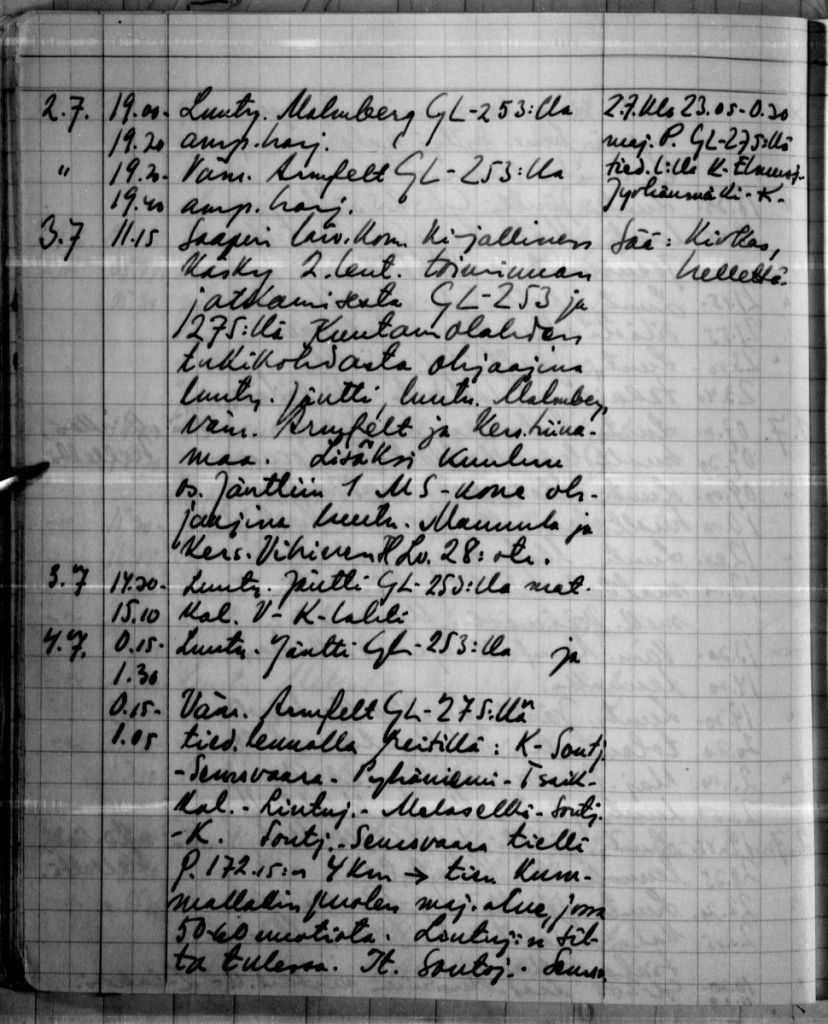 2.7. 19.00- Luutn. Malmberg GL-253:lla
19.20 amp.harj.
" 19.20- Vänr. Armfelt GL-253:lla
19.40 amp.harj.
2.7. klo 23.05-0.30
maj. P. GL-275:llä
tied.l:lla K-
-K-
3.7 11.15 Saapui laiv.kom. kirjallinen
käsky 2.lent. toiminnan
jatkamisesta GL-253 ja
275:llä Kuutamolahden
tukikohdasta ohjaajina
luutn. Jäntti, luutn. Malmberg,
vänr. Armfelt ja kers. Hiina-
maa. Lisäksi kuuluu
os. Jänttiin 1 MS-kone oh-
jaajina luutn. Mannula ja
kers. Vihinen H.Lv. 28:sta.
Sää: Kirkas,
hellettä.
3.7 14.30- Luutn. Jäntti GL-253:lla mat.
15.10 kal. V-K-lahti
4.7. 0.15- Luutn. Jäntti GL-253:lla ja
1.30
0.15- Vänr. Armfelt GL-275:llä
1.05 tied.lennolla reitillä: K-Sontj.
-Seunsvaara-Pyhäniemi-
kal.-Lintuj.-Melaselkä-Sontj.
-K. Sontj.-Seunsvaara tiellä
P. 172.15:n 4 km → tien kum-
mallakin puolen maj.alue, jossa
50-60 nuotiota. Lintuj:n sil-
ta tulessa. It. Sontj.-